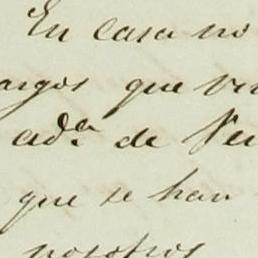 En casa no
argos que
ad.ª de
que se han
nosotros